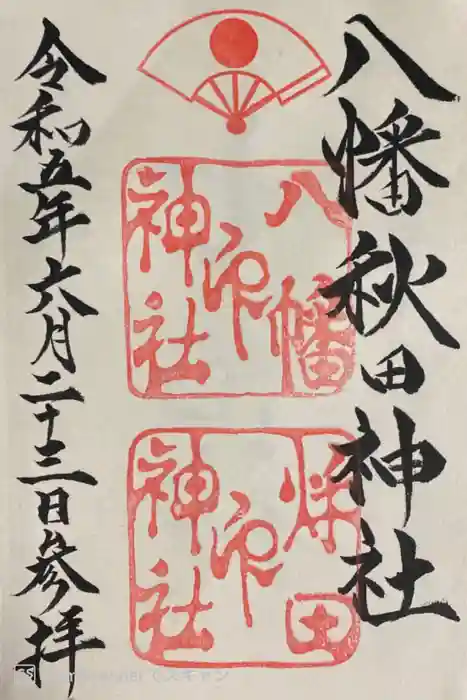 八幡秋田神社
八幡
印
神社
秋田
印
神社
令和五年六月二十三日参拝
でスキャン